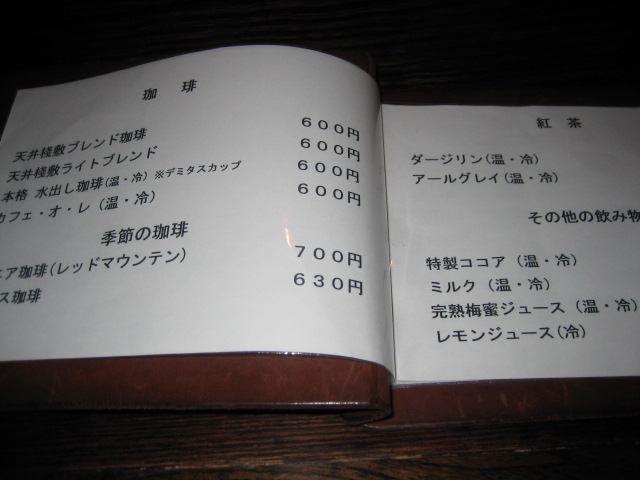 珈 琲
天井棧敷ブレンド珈琲 600円
天井棧敷ライトブレンド 600円
本格 水出し珈琲(温・冷) ※デミタスカップ 600円
カフェ・オ・レ (温・冷) 600円
季節の珈琲
ア珈琲(レッドマウンテン) 700円
ス珈琲 630円
紅 茶
ダージリン(温・冷)
アールグレイ(温・冷)
その他の飲み物
特製ココア (温・冷)
ミルク (温・冷)
完熟梅蜜ジュース (温・冷)
レモンジュース(冷)